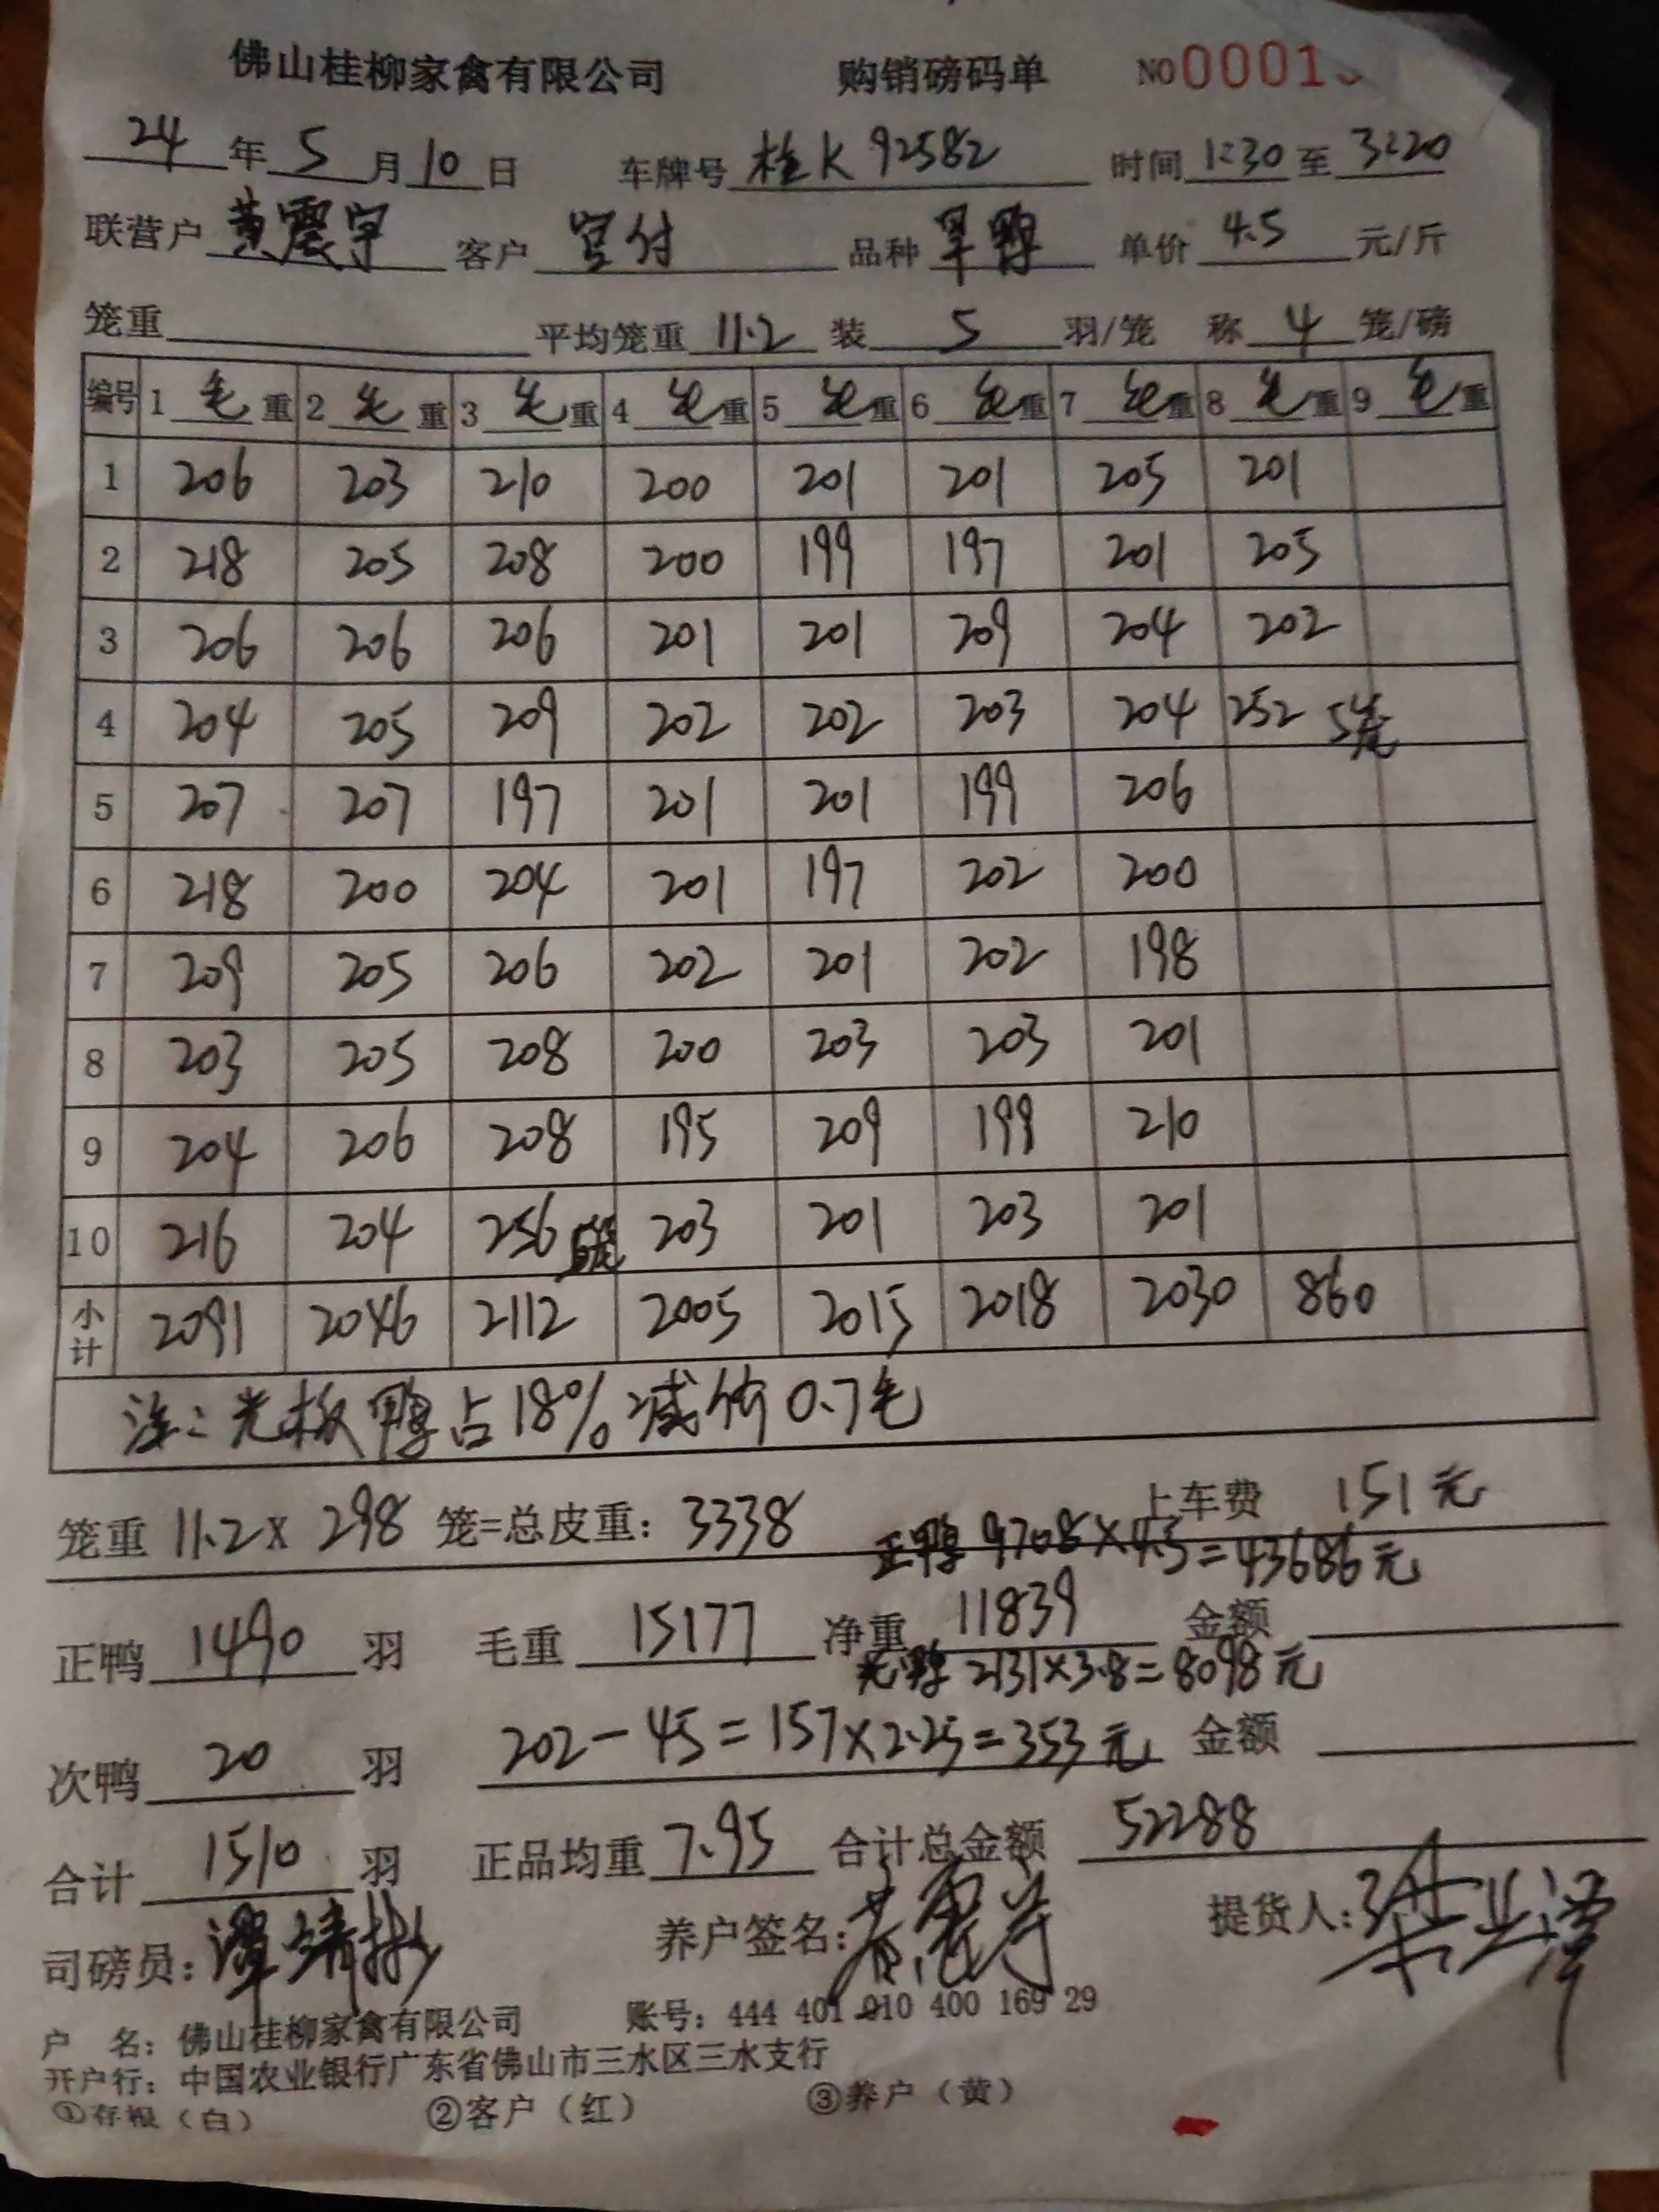 佛山桂柳家禽有限公司 购销磅码单 NO 00015
24 年 5 月 10 日 车牌号 桂K 92582 时间 1:30 至 3:20
联营户 黄震宇 客户 官付 品种 旱鸭 单价 4.5 元/斤
笼重 平均笼重 11.2 装 5 羽/笼 称 4 笼/磅
编号 1 毛 重 2 毛 重 3 毛 重 4 毛 重 5 毛 重 6 毛 重 7 毛 重 8 毛 重 9 毛 重
1 206 203 210 200 201 201 205 201
2 218 205 208 200 199 197 201 205
3 206 206 206 201 201 209 204 202
4 204 205 209 202 202 203 204 252 5笼
5 207 207 197 201 201 199 206
6 218 200 204 201 197 202 200
7 209 205 206 202 201 202 198
8 203 205 208 200 203 203 201
9 204 206 208 195 209 199 210
10 216 204 256 5笼 203 201 203 201
小计 2091 2046 2112 2005 2015 2018 2030 860
注:光板鸭占18%减价0.7毛
上车费 151元
笼重 11.2 X 298 笼=总皮重: 3338
正鸭 9708×4.5=43686元
正鸭 1490 羽 毛重 15177 净重 11839 金额
光鸭 2131×3.8=8098元
次鸭 20 羽 202-45=157×2.25=353元 金额
合计 1510 羽 正品均重 7.95 合计总金额 52288
司磅员: 养户签名: 黄震宇 提货人:
户 名: 佛山桂柳家禽有限公司 账号: 444 401 010 400 169 29
开户行: 中国农业银行广东省佛山市三水区三水支行
①存根(白) ②客户(红) ③养户(黄)